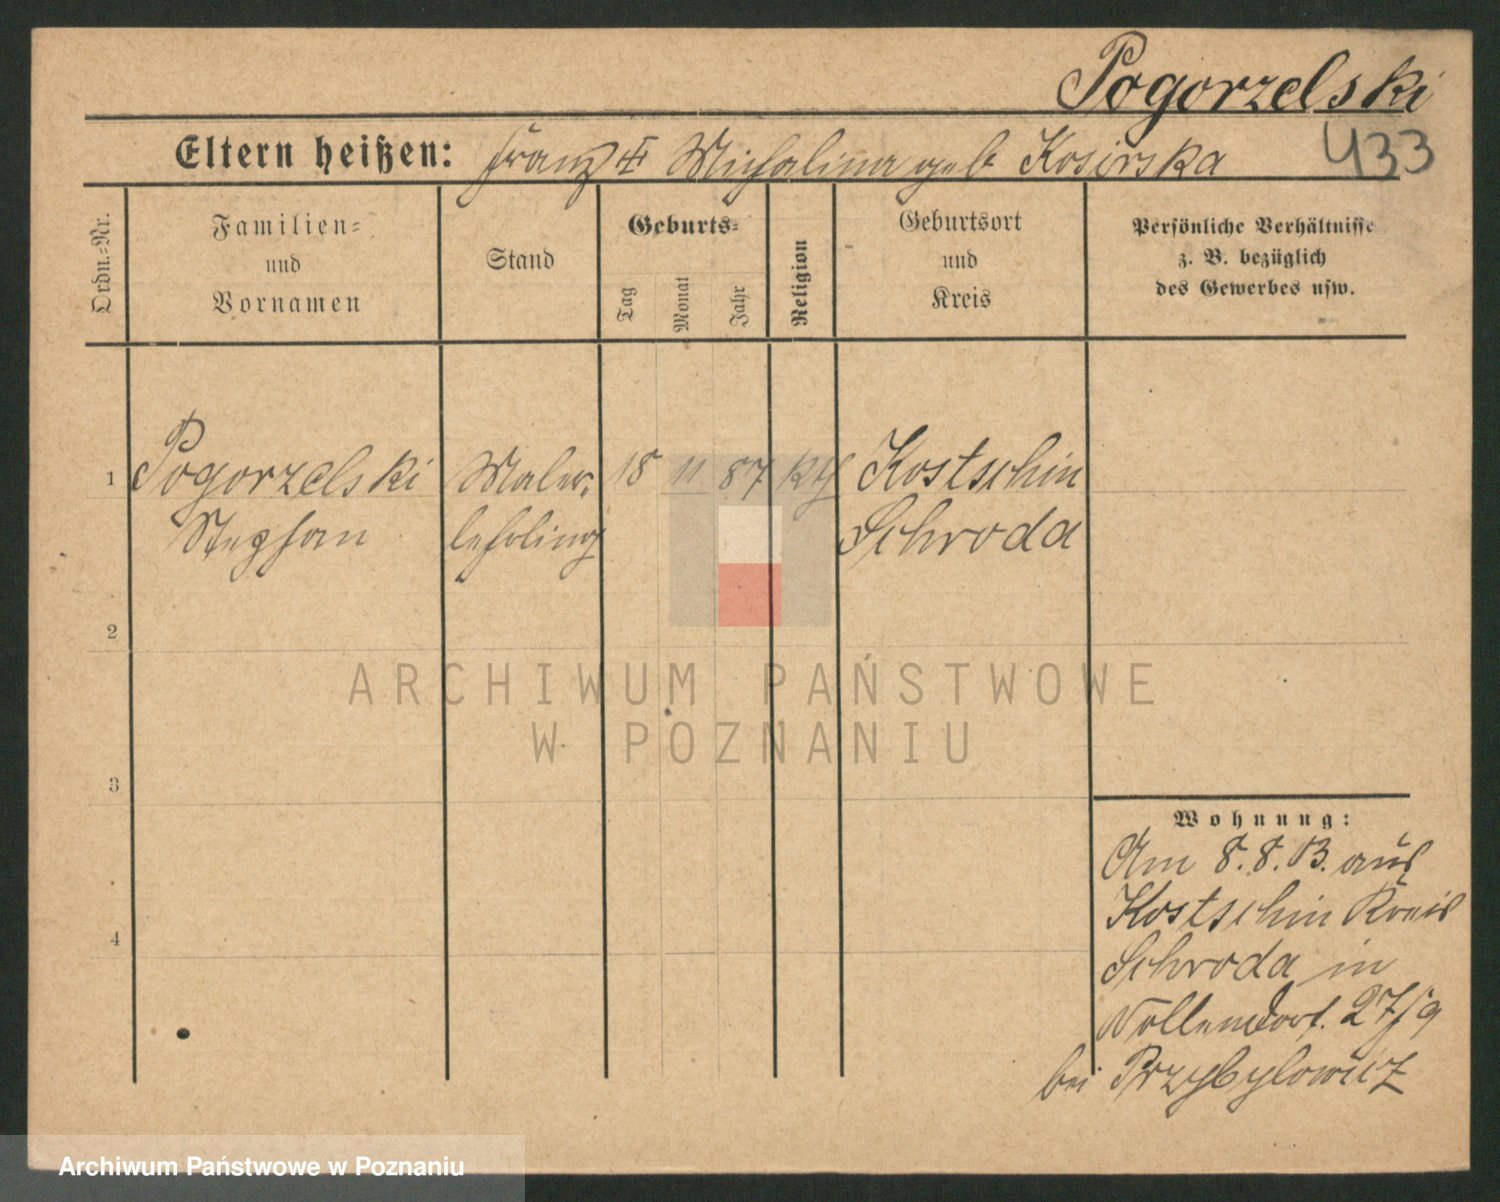 Pogorzelski
433
Eltern heißen: Franz u Michalina geb Kosirska
Ordn.-Nr.
Familien-
und
Vornamen
Stand
Geburts-
Tag
Monat
Jahr
Religion
Geburtsort
und
Kreis
Persönliche Verhältnisse
z. B. bezüglich
des Gewerbes usw.
1 Pogorzelski Maler- 18 11 87 kth Kostschin
Stephan lehrling Schroda
2
3
4
Wohnung:
Am 8.8.03. aus
Kostschin Kreis
Schroda in
Nollendorf. 27/9
bei Przybylowicz
ARCHIWUM PAŃSTWOWE
W POZNANIU
Archiwum Państwowe w Poznaniu